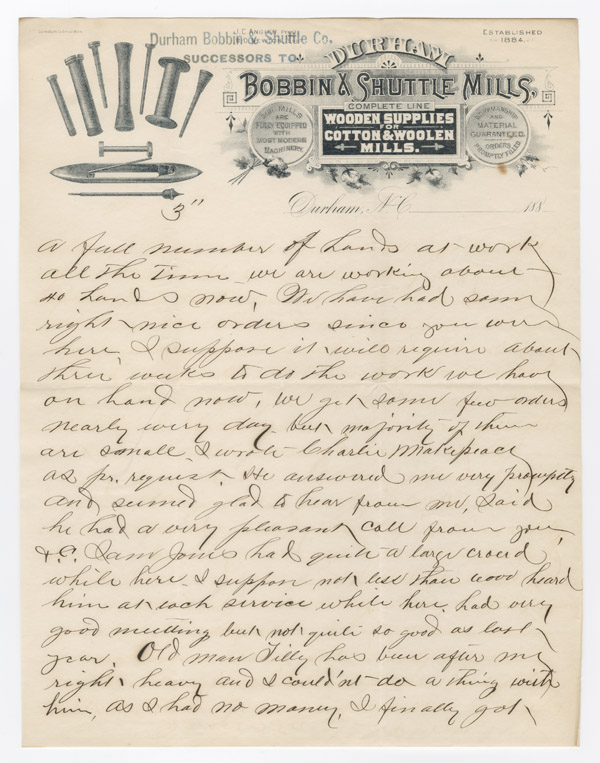 Durham Bobbin & Shuttle Co.
SUCCESSORS TO
ESTABLISHED
1884
DURHAM
BOBBIN & SHUTTLE MILLS,
COMPLETE LINE
WOODEN SUPPLIES
FOR
COTTON & WOOLEN
MILLS.
OUR MILLS
ARE
FULLY EQUIPPED
WITH
MOST MODERN
MACHINERY.
WORKMANSHIP
AND
MATERIAL
GUARANTEED.
ORDERS
PROMPTLY FILLED
Durham, N.C. 188
3"
a full number of hands at work
all the time we are working about
40 hands now, We have had some
right nice orders since you were
here, I suppose it will require about
three weeks to do the work we have
on hand now, we get some few orders
nearly every day but majority of them
are small, I wrote Charlie Makepeace
as pr. request. He answered me very promptly
and seemed glad to hear from me, Said
he had a very pleasant call from you,
&.C. Sam Jones had quite a large crowd
while here I suppose not less than 4000 heard
him at each service while here, had very
good meeting but not quite so good as last
year. Old man Tilly has been after me
right heavy and I could'nt do a thing with
him, as I had no money, I finally got